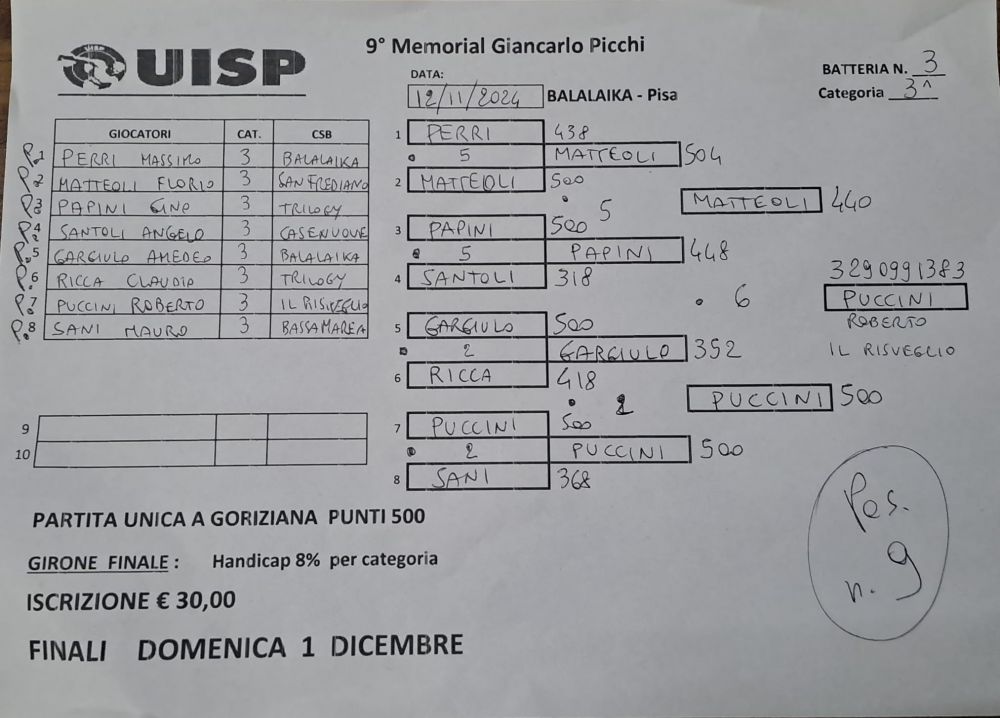 UISP
9° Memorial Giancarlo Picchi
DATA:
12/11/2024 BALALAIKA - Pisa
BATTERIA N. 3
Categoria 3^
GIOCATORI CAT. CSB
P.1 PERRI MASSIMO 3 BALALAIKA
P.2 MATTEOLI FLORIO 3 SAN FREDIANO
P.3 PAPINI GINO 3 TRILOGY
P.4 SANTOLI ANGELO 3 CASENUOVE
P.5 GARGIULO AMEDEO 3 BALALAIKA
P.6 RICCA CLAUDIO 3 TRILOGY
P.7 PUCCINI ROBERTO 3 IL RISVEGLIO
P.8 SANI MAURO 3 BASSA MAREA
9
10
1 PERRI 438
5 MATTEOLI 504
2 MATTEIOLI 500
5 MATTEOLI 440
3 PAPINI 500
5 PAPINI 448
4 SANTOLI 318
3290991383
6 PUCCINI
ROBERTO
IL RISVEGLIO
5 GARGIULO 500
2 GARGIULO 352
6 RICCA 418
2 PUCCINI 500
7 PUCCINI 500
2 PUCCINI 500
8 SANI 368
PARTITA UNICA A GORIZIANA PUNTI 500
GIRONE FINALE : Handicap 8% per categoria
ISCRIZIONE € 30,00
FINALI DOMENICA 1 DICEMBRE
Pos.
n. 9